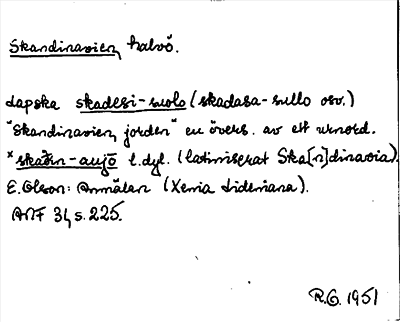 Skandinavien, halvö.
Lapska skadesi-suolo (skadasa-sullo osv.)
"Skandinavien, jorden" en övers. av ett urnord.
*skaðin-aujō l. dyl. (latiniserat Ska[n]dinavia).
E. Olson: Anmälan (Xenia Lideniana).
ANF 31, s. 225.
R.G. 1951